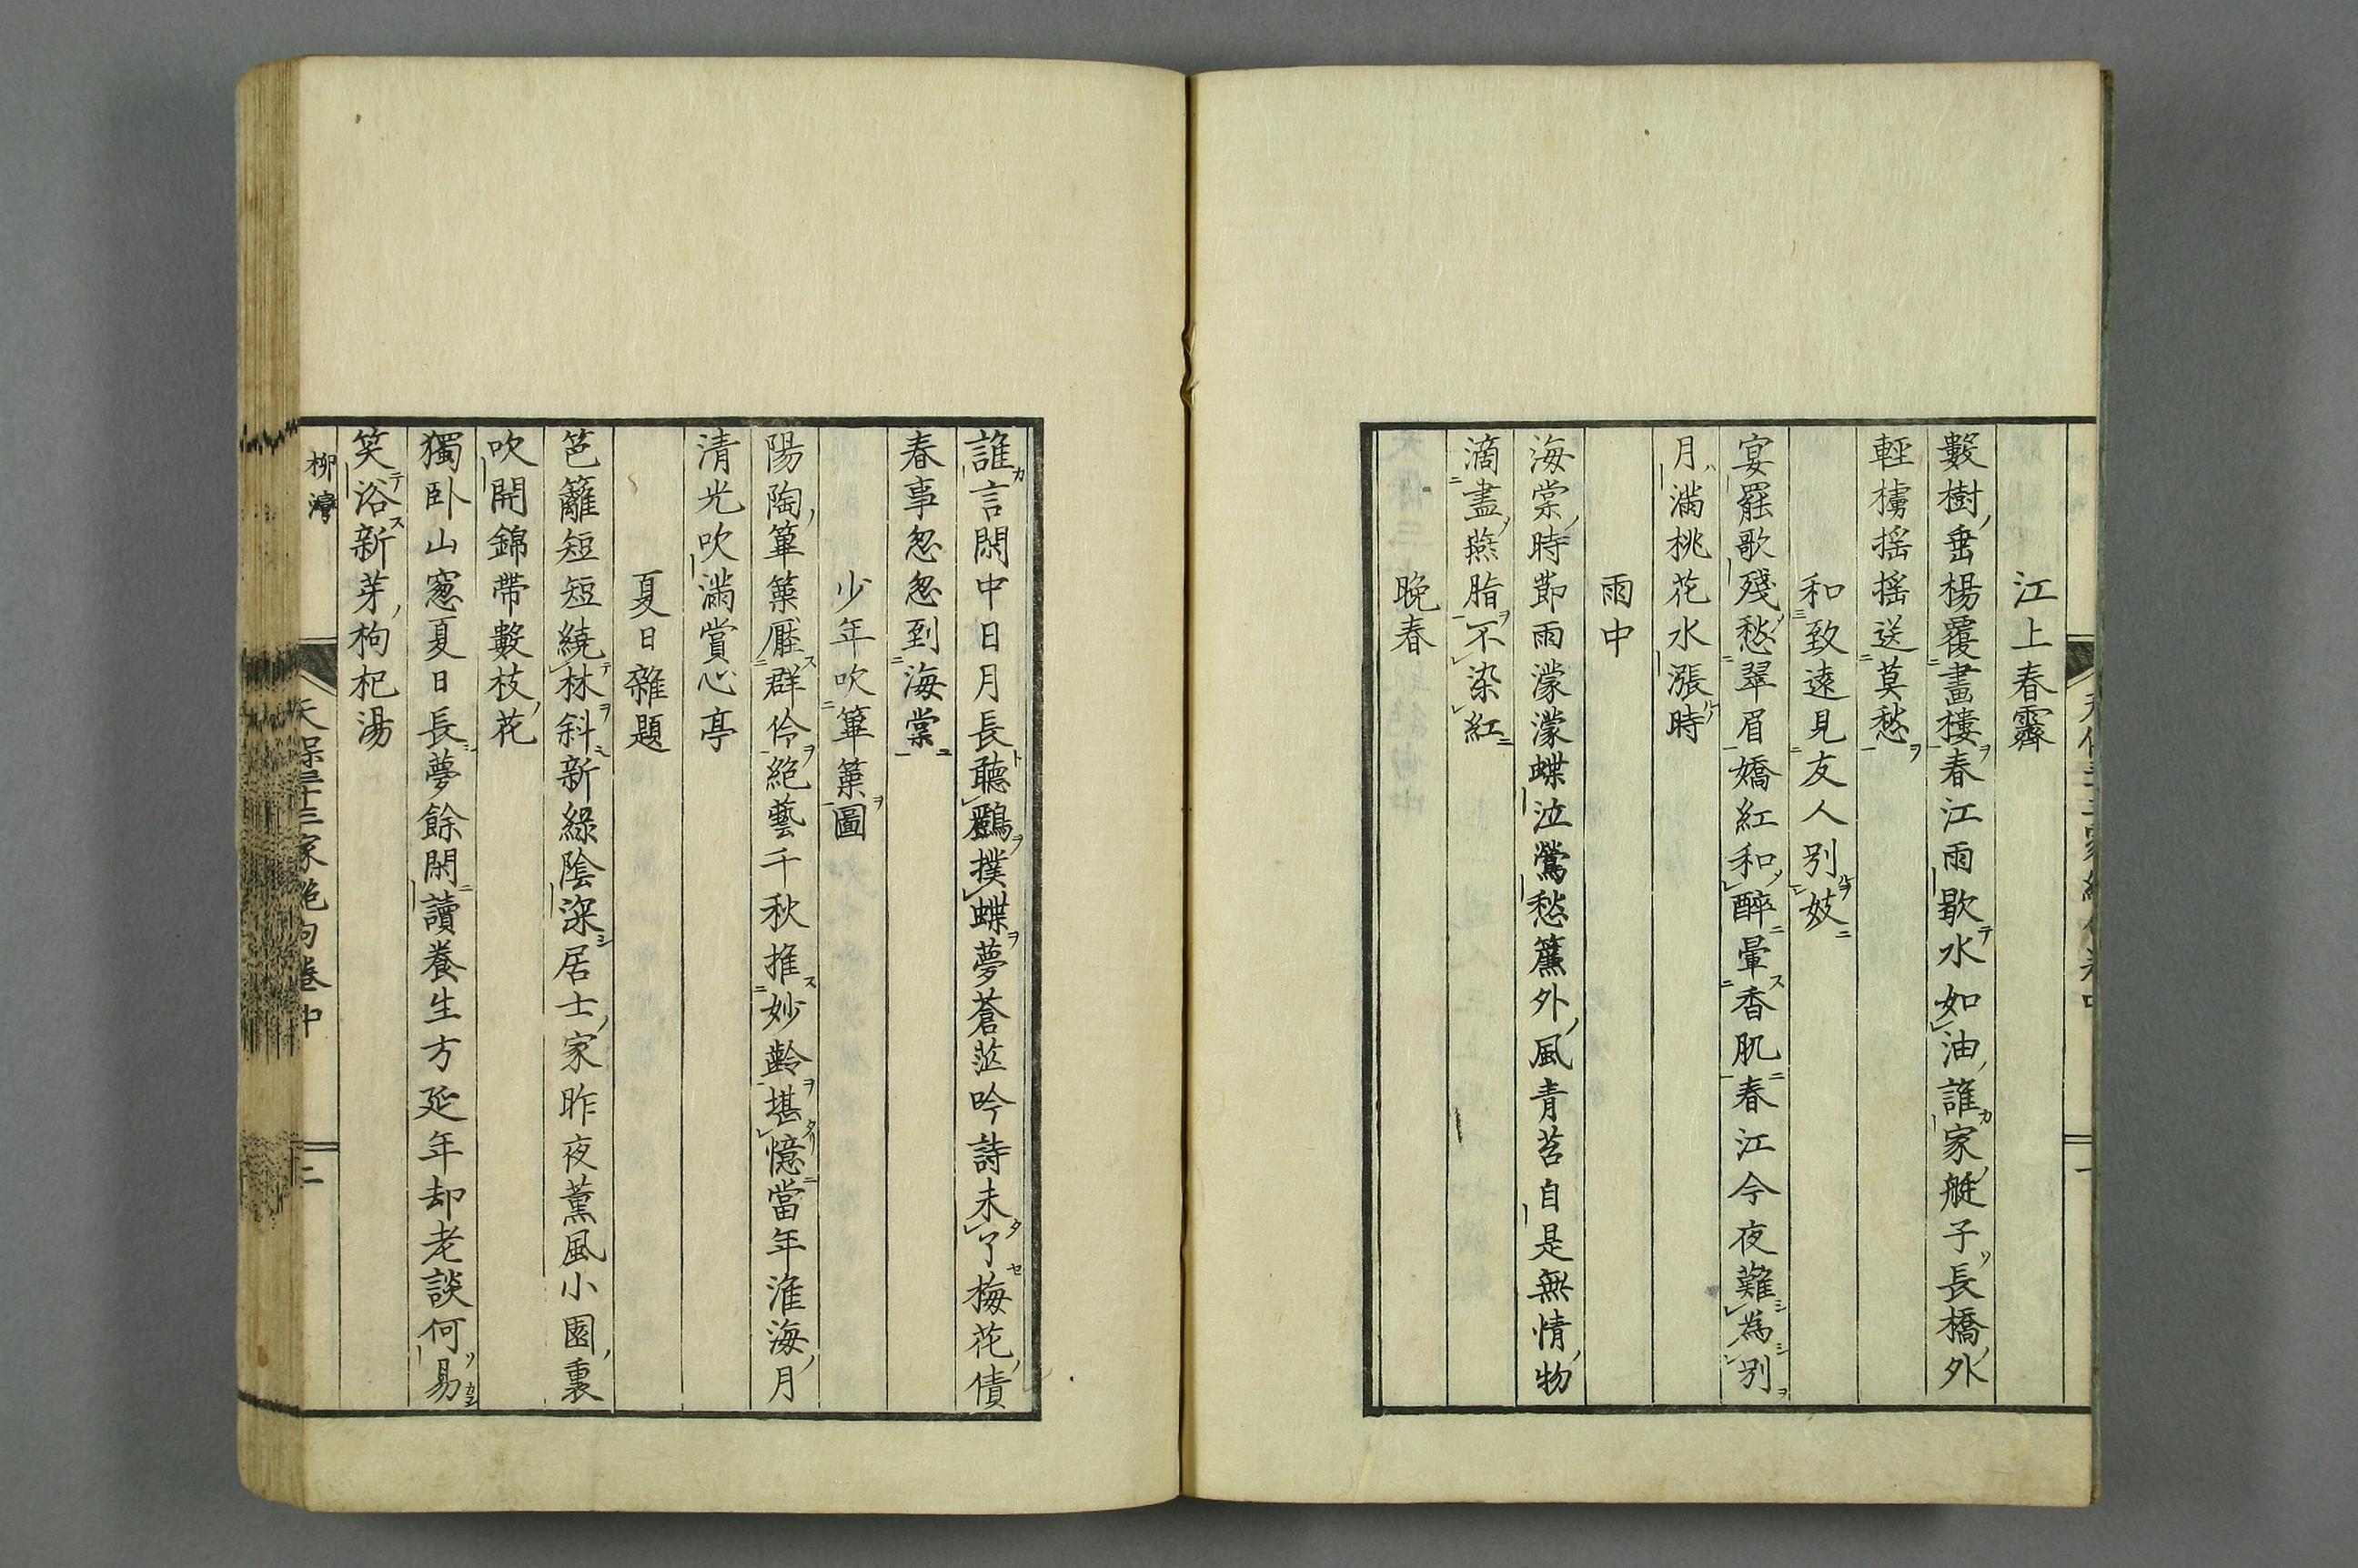 江上春霽
數樹垂楊覆畫樓春江雨歇水如油誰家艇子長橋外
輕櫓揺揺送莫愁
和致遠見友人別妓
宴罷歌殘愁翠眉嬌紅和醉暈香肌春江今夜難為別
月滿桃花水漲時
雨中
海棠時節雨濛濛蝶泣鶯愁簾外風青苔自是無情物
滴盡燕脂不染紅
晚春
誰言閑中日月長聽鸝撲蝶夢蒼茫吟詩未了梅花債
春事怱怱到海棠
少年吹篳篥圖
陽陶篳篥壓群伶絕藝千秋推妙齡堪憶當年淮海月
清光吹滿賞心亭
夏日雜題
笆籬短短繞林斜新綠陰深居士家昨夜薰風小園裏
吹開錦帶數枝花
獨臥山窓夏日長夢餘閑讀養生方延年却老談何易
笑浴新芽枸杞湯
柳灣
天保三十三家絶句卷中
二